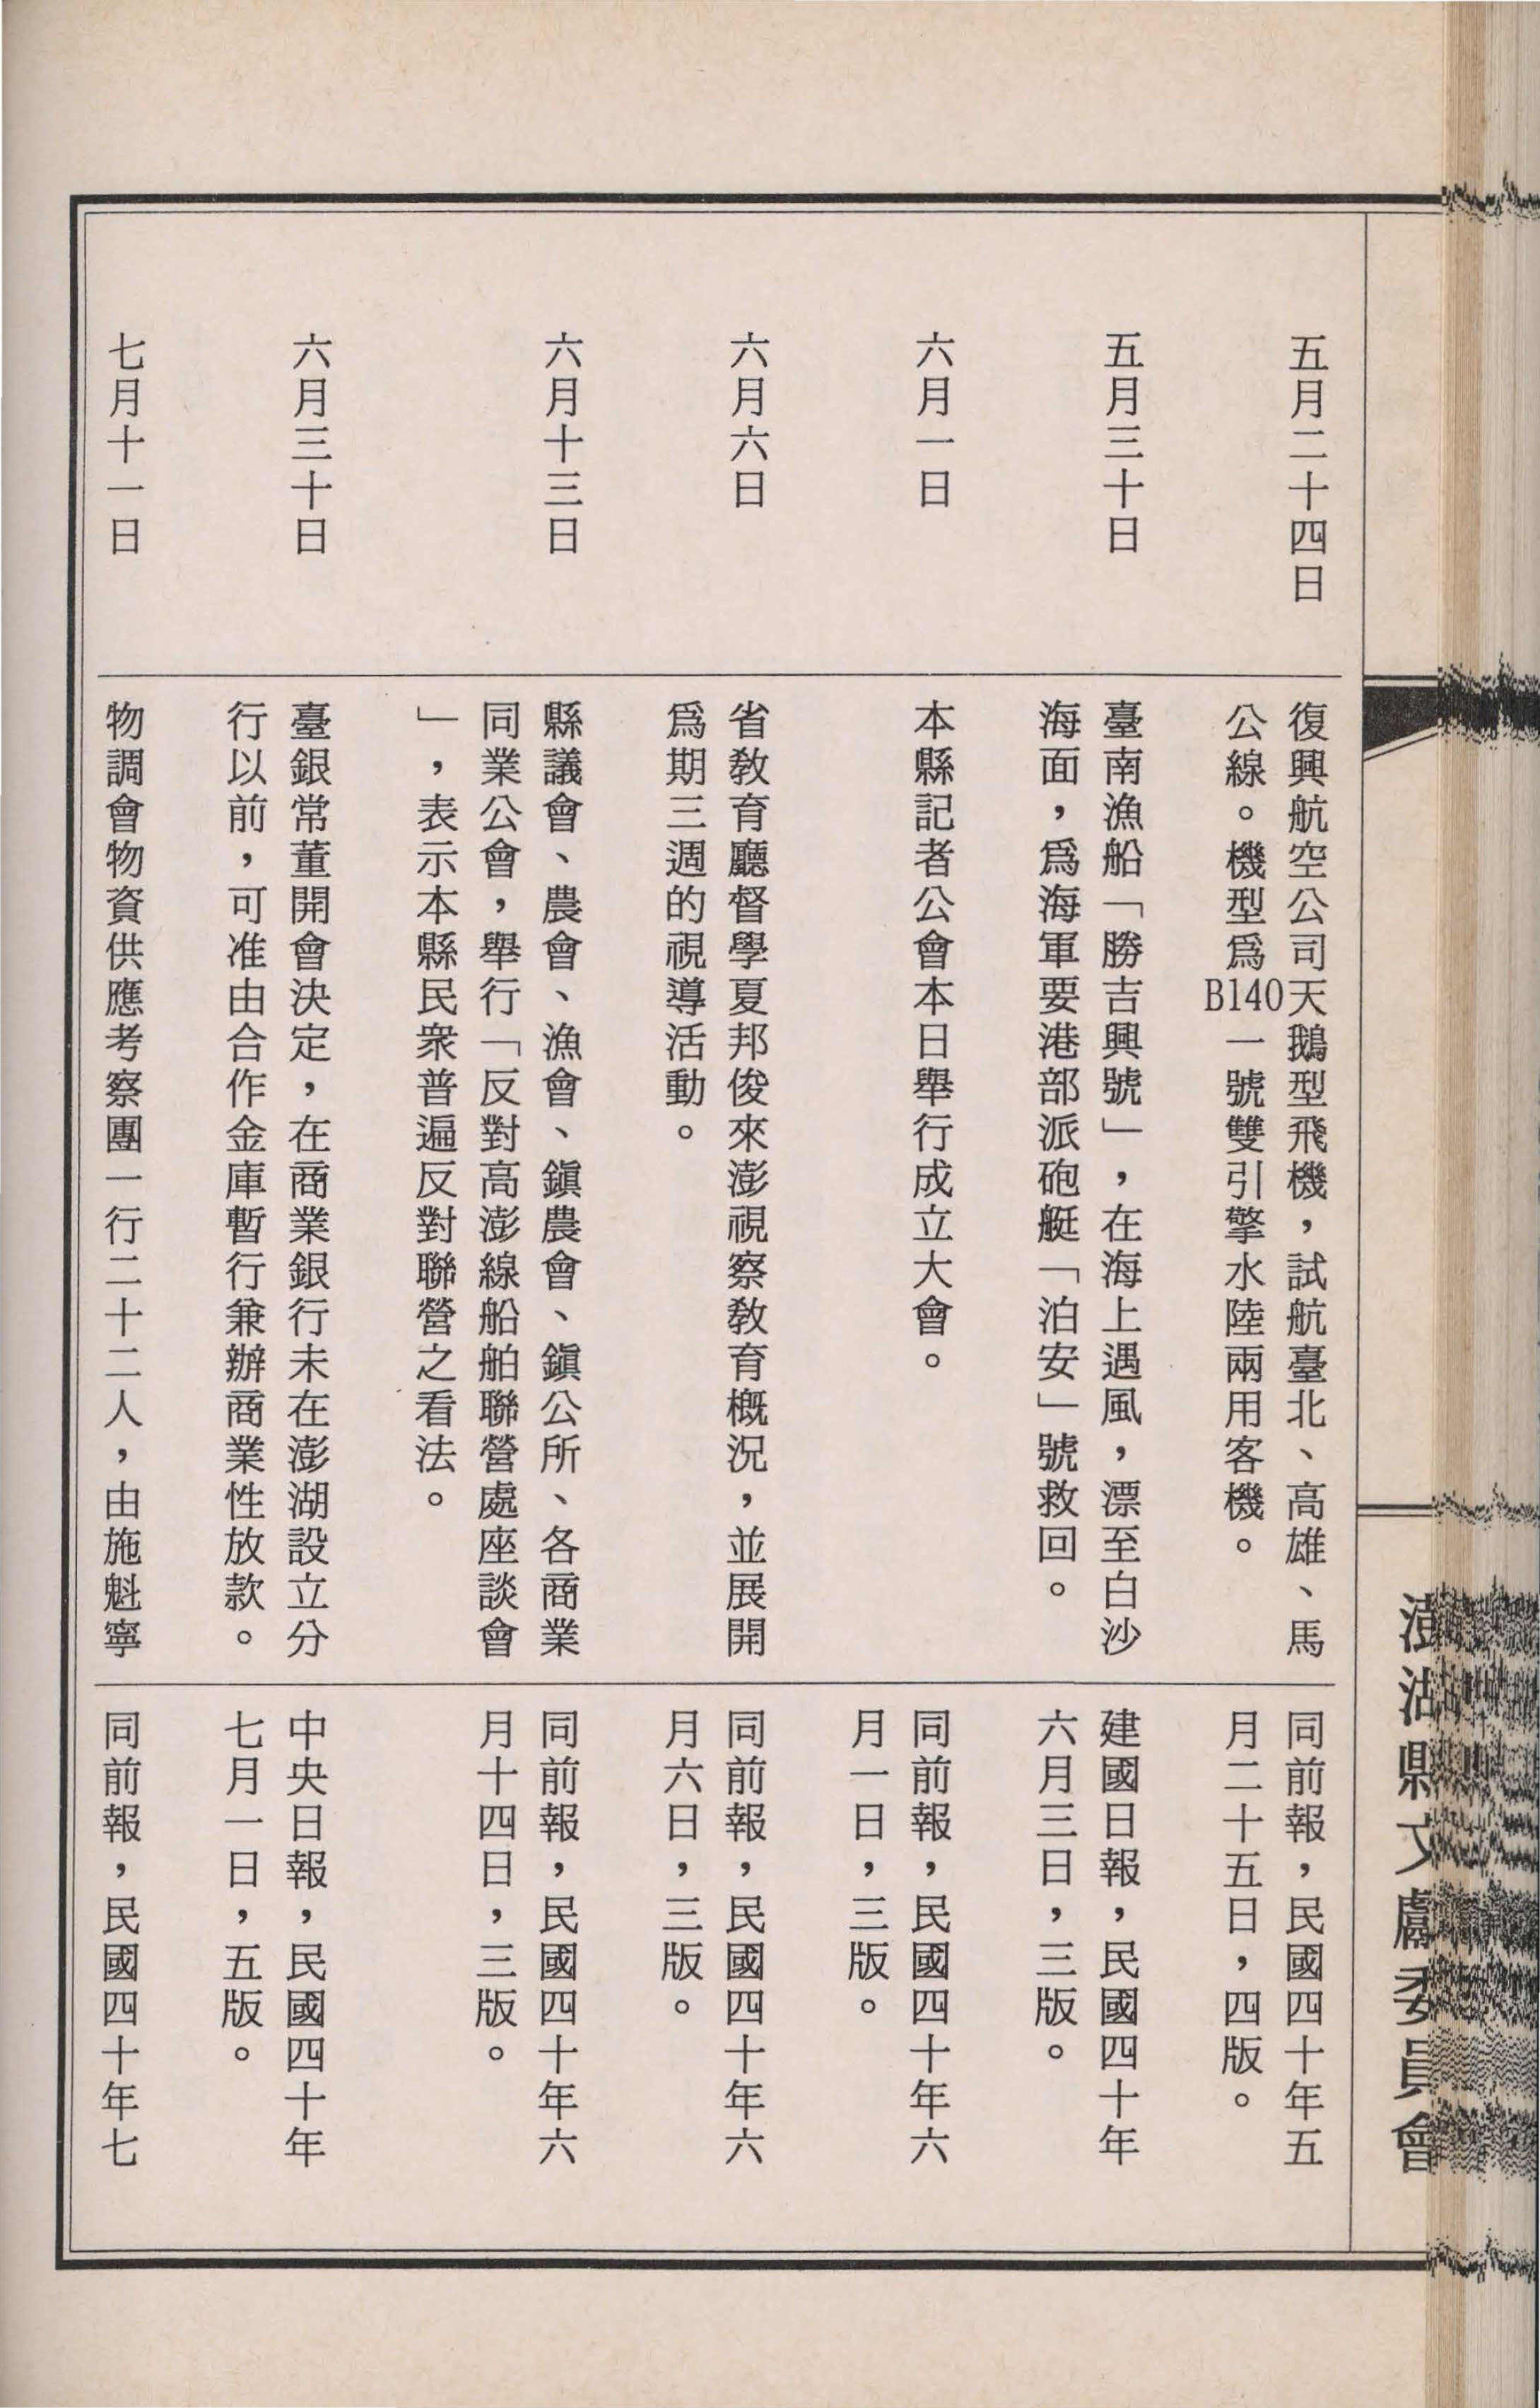 澎湖縣文獻委員會
五月二十四日
復興航空公司天鵝型飛機，試航臺北、高雄、馬
公線。機型爲B140一號雙引擎水陸兩用客機。
同前報，民國四十年五
月二十五日，四版。
五月三十日
臺南漁船「勝吉興號」，在海上遇風，漂至白沙
海面，爲海軍要港部派砲艇「泊安」號救回。
建國日報，民國四十年
六月三日，三版。
六月一日
本縣記者公會本日舉行成立大會。
同前報，民國四十年六
月一日，三版。
六月六日
省敎育廳督學夏邦俊來澎視察敎育槪況，並展開
爲期三週的視導活動。
同前報，民國四十年六
月六日，三版。
六月十三日
縣議會、農會、漁會、鎭農會、鎭公所、各商業
同業公會，舉行「反對高澎線船舶聯營處座談會
」，表示本縣民衆普遍反對聯營之看法。
同前報，民國四十年六
月十四日，三版。
六月三十日
臺銀常董開會決定，在商業銀行未在澎湖設立分
行以前，可准由合作金庫暫行兼辦商業性放款。
中央日報，民國四十年
七月一日，五版。
七月十一日
物調會物資供應考察團一行二十二人，由施魁寧
同前報，民國四十年七